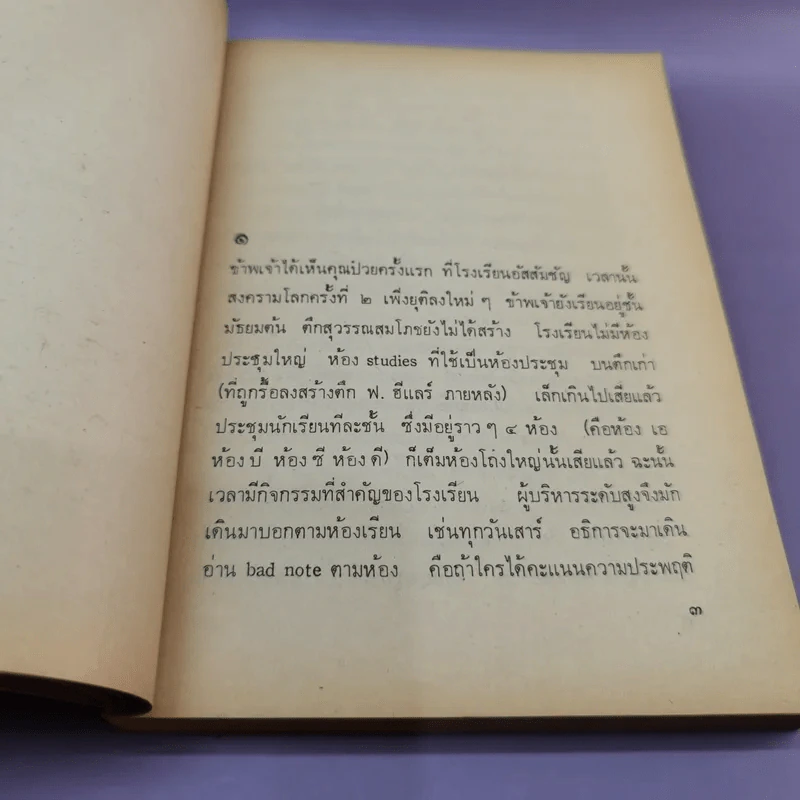 ๑
ข้าพเจ้าได้เห็นคุณป๋วยครั้งแรก ที่โรงเรียนอัสสัมชัญ เวลานั้น
สงครามโลกครั้งที่ ๒ เพิ่งยุติลงใหม่ ๆ ข้าพเจ้ายังเรียนอยู่ชั้น
มัธยมต้น ตึกสุวรรณสมโภชยังไม่ได้สร้าง โรงเรียนไม่มีห้อง
ประชุมใหญ่ ห้อง studies ที่ใช้เป็นห้องประชุม บนตึกเก่า
(ที่ถูกรื้อลงสร้างตึก ฟ. ฮีแลร์ ภายหลัง) เล็กเกินไปเสียแล้ว
ประชุมนักเรียนทีละชั้น ซึ่งมีอยู่ราว ๆ ๔ ห้อง (คือห้อง เอ
ห้อง บี ห้อง ซี ห้อง ดี) ก็เต็มห้องโถงใหญ่นั้นเสียแล้ว ฉะนั้น
เวลามีกิจกรรมที่สำคัญของโรงเรียน ผู้บริหารระดับสูงจึงมัก
เดินมาบอกตามห้องเรียน เช่นทุกวันเสาร์ อธิการจะมาเดิน
อ่าน bad note ตามห้อง คือถ้าใครได้คะแนนความประพฤติ
๓